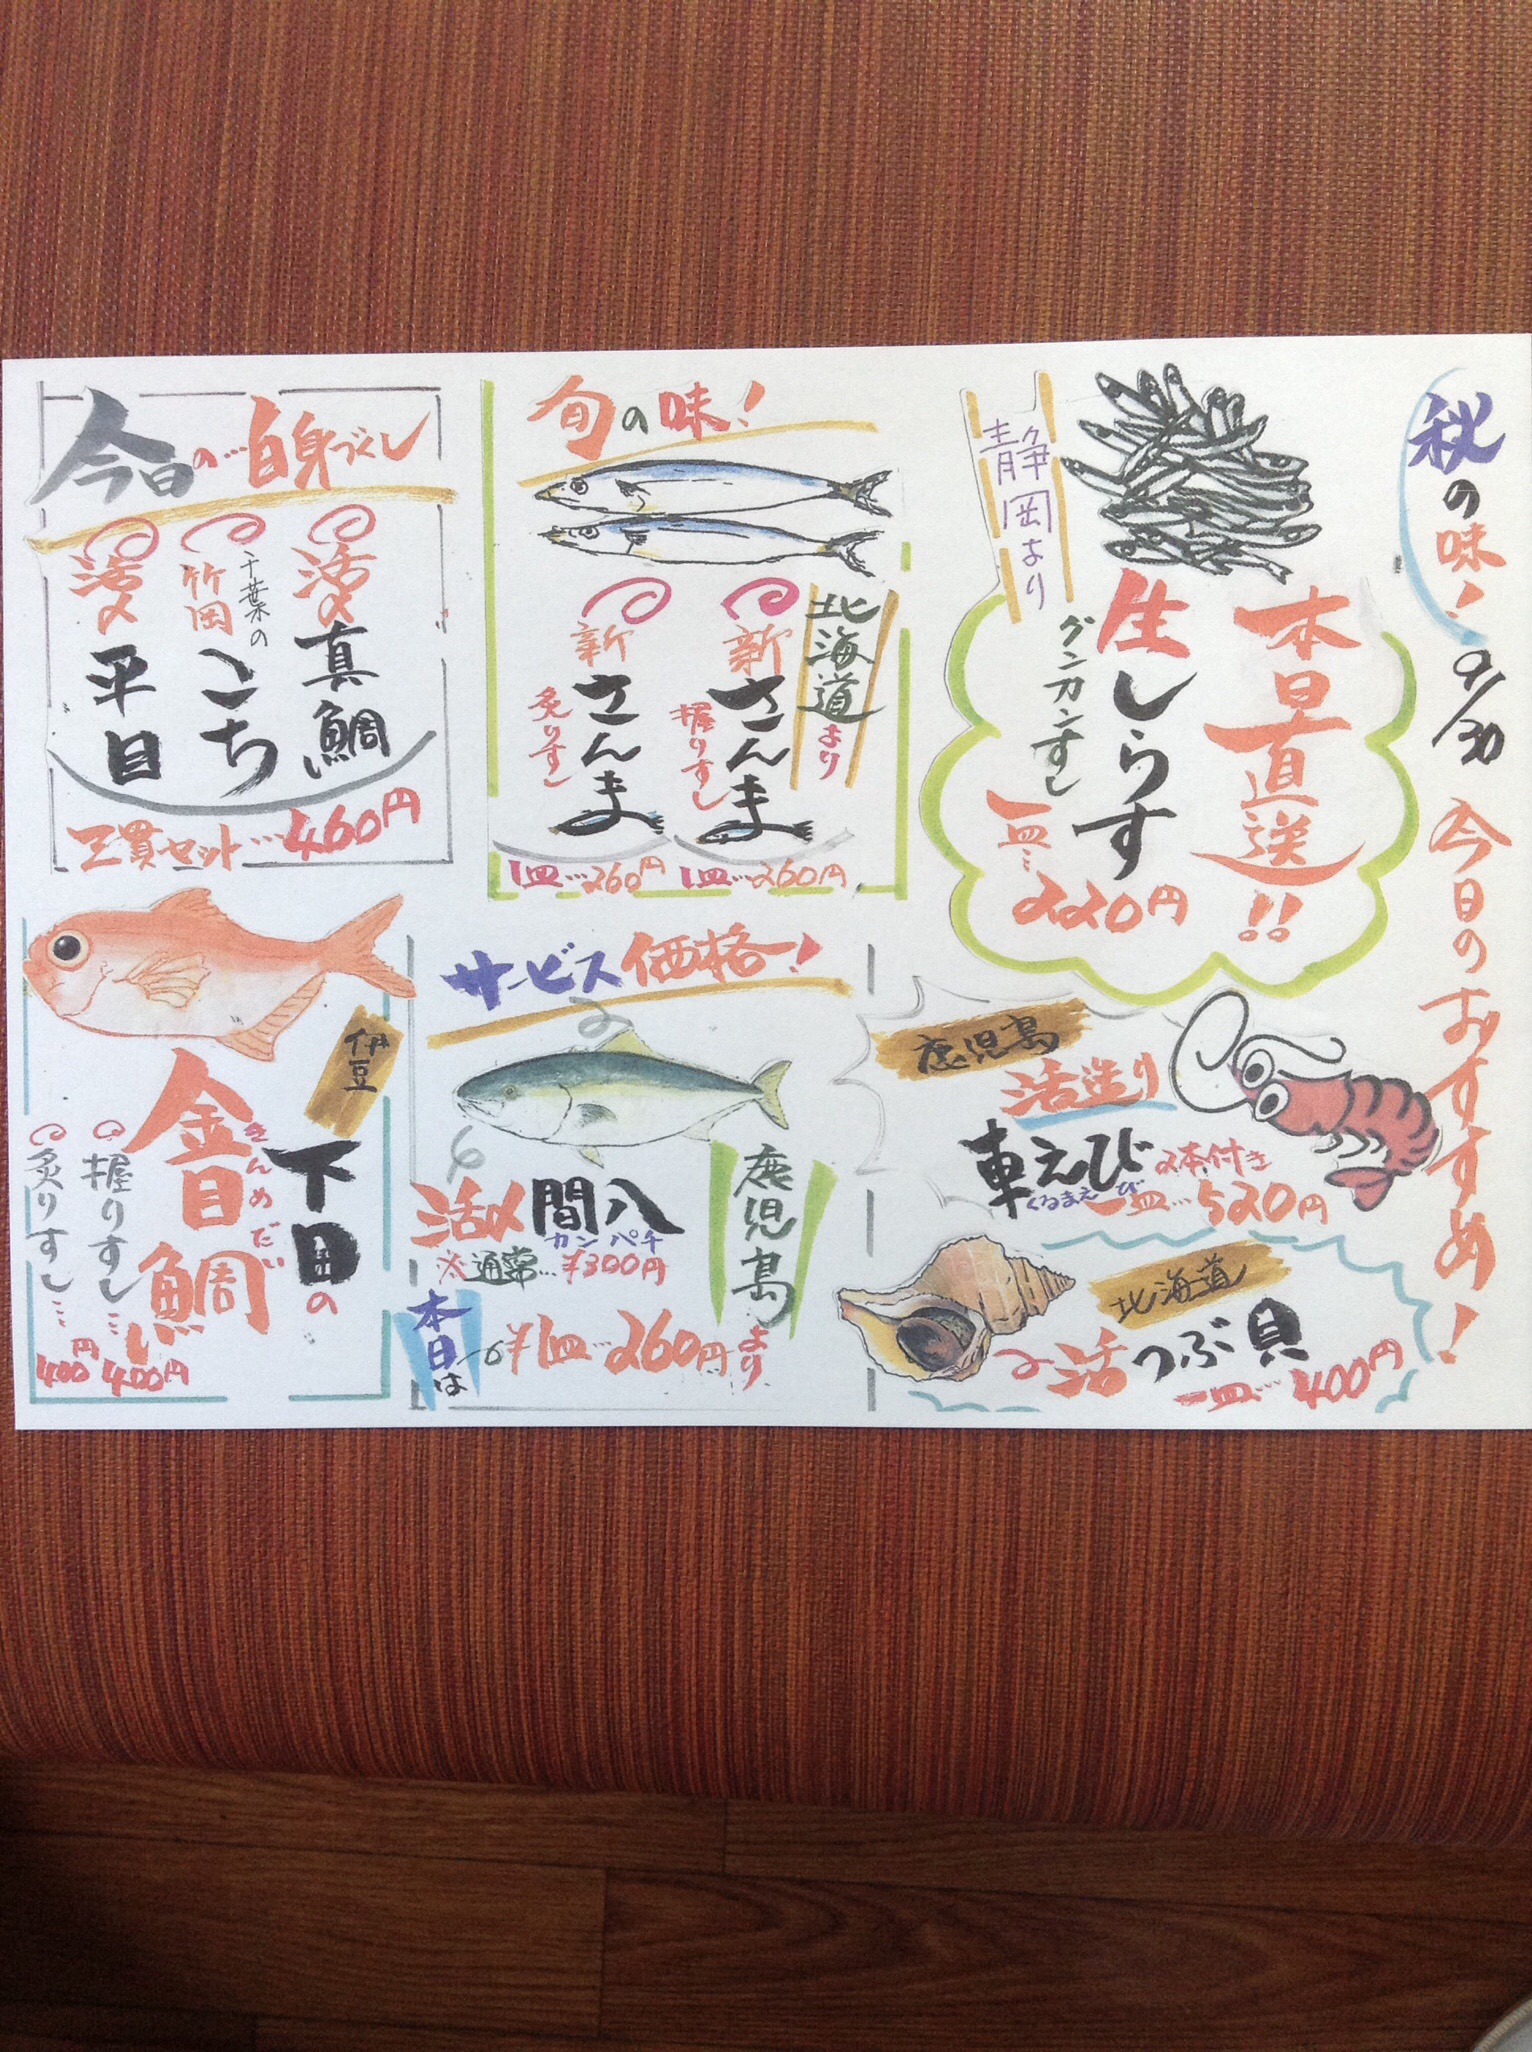 秋の味！ 9/30 今日のおすすめ！
本日直送!!
生しらす
グンカンすし
一皿…220円
静岡より
旬の味！
北海道より
新さんま
握りすし
1皿…260円
新さんま
炙りすし
1皿…260円
今日の…白身づくし
活〆真鯛
千葉の
竹岡こち
活〆平目
三貫セット…460円
鹿児島
活造り
車えび
くるまえび
2本付き
一皿…520円
北海道
活つぶ貝
一皿…400円
サービス価格！
鹿児島より
活〆間八
カンパチ
※通常…¥300円
本日は
1皿…260円
伊豆
下田の
金目鯛
きんめだい
握りすし…400円
炙りすし…400円